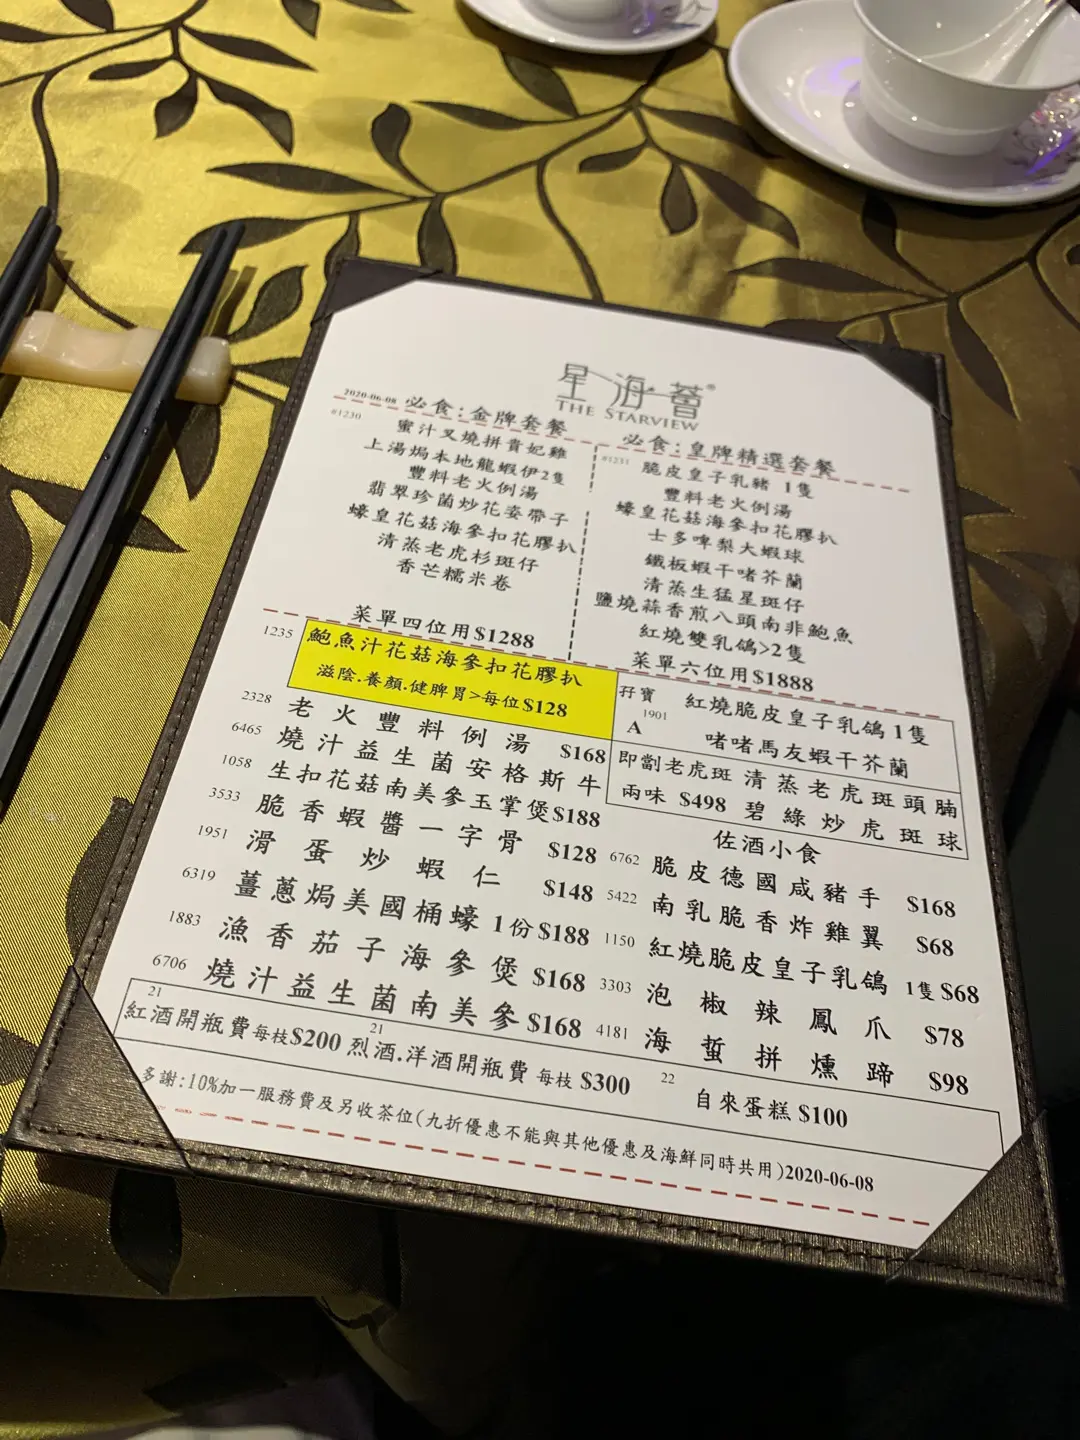 星海薈®
THE STARVIEW
2020-06-08 必食:金牌套餐
#1230
蜜汁叉燒拼貴妃雞
上湯焗本地龍蝦伊2隻
豐料老火例湯
翡翠珍菌炒花姿帶子
蠔皇花菇海參扣花膠扒
清蒸老虎杉斑仔
香芒糯米卷
菜單四位用$1288
必食:皇牌精選套餐
#1231
脆皮皇子乳豬 1隻
豐料老火例湯
蠔皇花菇海參扣花膠扒
士多啤梨大蝦球
鐵板蝦干啫芥蘭
清蒸生猛星斑仔
鹽燒蒜香煎八頭南非鮑魚
紅燒雙乳鴿>2隻
菜單六位用$1888
1235 鮑魚汁花菇海參扣花膠扒
滋陰.養顏.健脾胃>每位$128
2328 老火豐料例湯 $168
6465 燒汁益生菌安格斯牛
1058 生扣花菇南美參玉掌煲$188
3533 脆香蝦醬一字骨 $128
1951 滑蛋炒蝦仁 $148
6319 薑蔥焗美國桶蠔 1份$188
1883 漁香茄子海參煲 $168
6706 燒汁益生菌南美參 $168
孖寶 A 1901
紅燒脆皮皇子乳鴿 1隻
啫啫馬友蝦干芥蘭
即劏老虎斑 清蒸老虎斑頭腩
兩味 $498 碧綠炒虎斑球
佐酒小食
6762 脆皮德國咸豬手 $168
5422 南乳脆香炸雞翼 $68
1150 紅燒脆皮皇子乳鴿 1隻$68
3303 泡椒辣鳳爪 $78
4181 海蜇拼燻蹄 $98
21 紅酒開瓶費每枝$200 21 烈酒.洋酒開瓶費 每枝 $300 22 自來蛋糕 $100
多謝:10%加一服務費及另收茶位(九折優惠不能與其他優惠及海鮮同時共用)2020-06-08